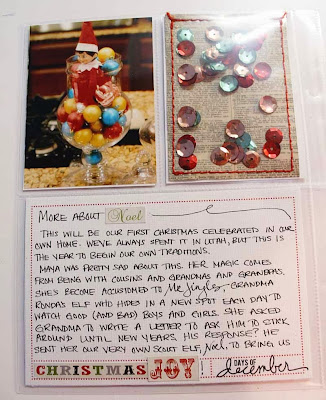 MORE ABOUT Noel
THIS WILL BE OUR FIRST CHRISTMAS CELEBRATED IN OUR
OWN HOME. WE'VE ALWAYS SPENT IT IN UTAH, BUT THIS IS
THE YEAR TO BEGIN OUR OWN TRADITIONS.
MAYA WAS PRETTY SAD ABOUT THIS. HER MAGIC COMES
FROM BEING WITH COUSINS AND GRANDMAS AND GRANDPAS.
SHE'S BECOME ACCUSTOMED TO Mr. Jingles, GRANDMA
RONDA'S ELF WHO HIDES IN A NEW SPOT EACH DAY TO
WATCH GOOD (AND BAD) BOYS AND GIRLS. SHE ASKED
GRANDMA TO WRITE A LETTER TO ASK HIM TO STICK
AROUND UNTIL NEW YEARS. HIS RESPONSE? HE
SENT HER OUR VERY OWN SCOUT ELF, Noel, TO BRING US
CHRISTMAS JOY! DAYS OF december